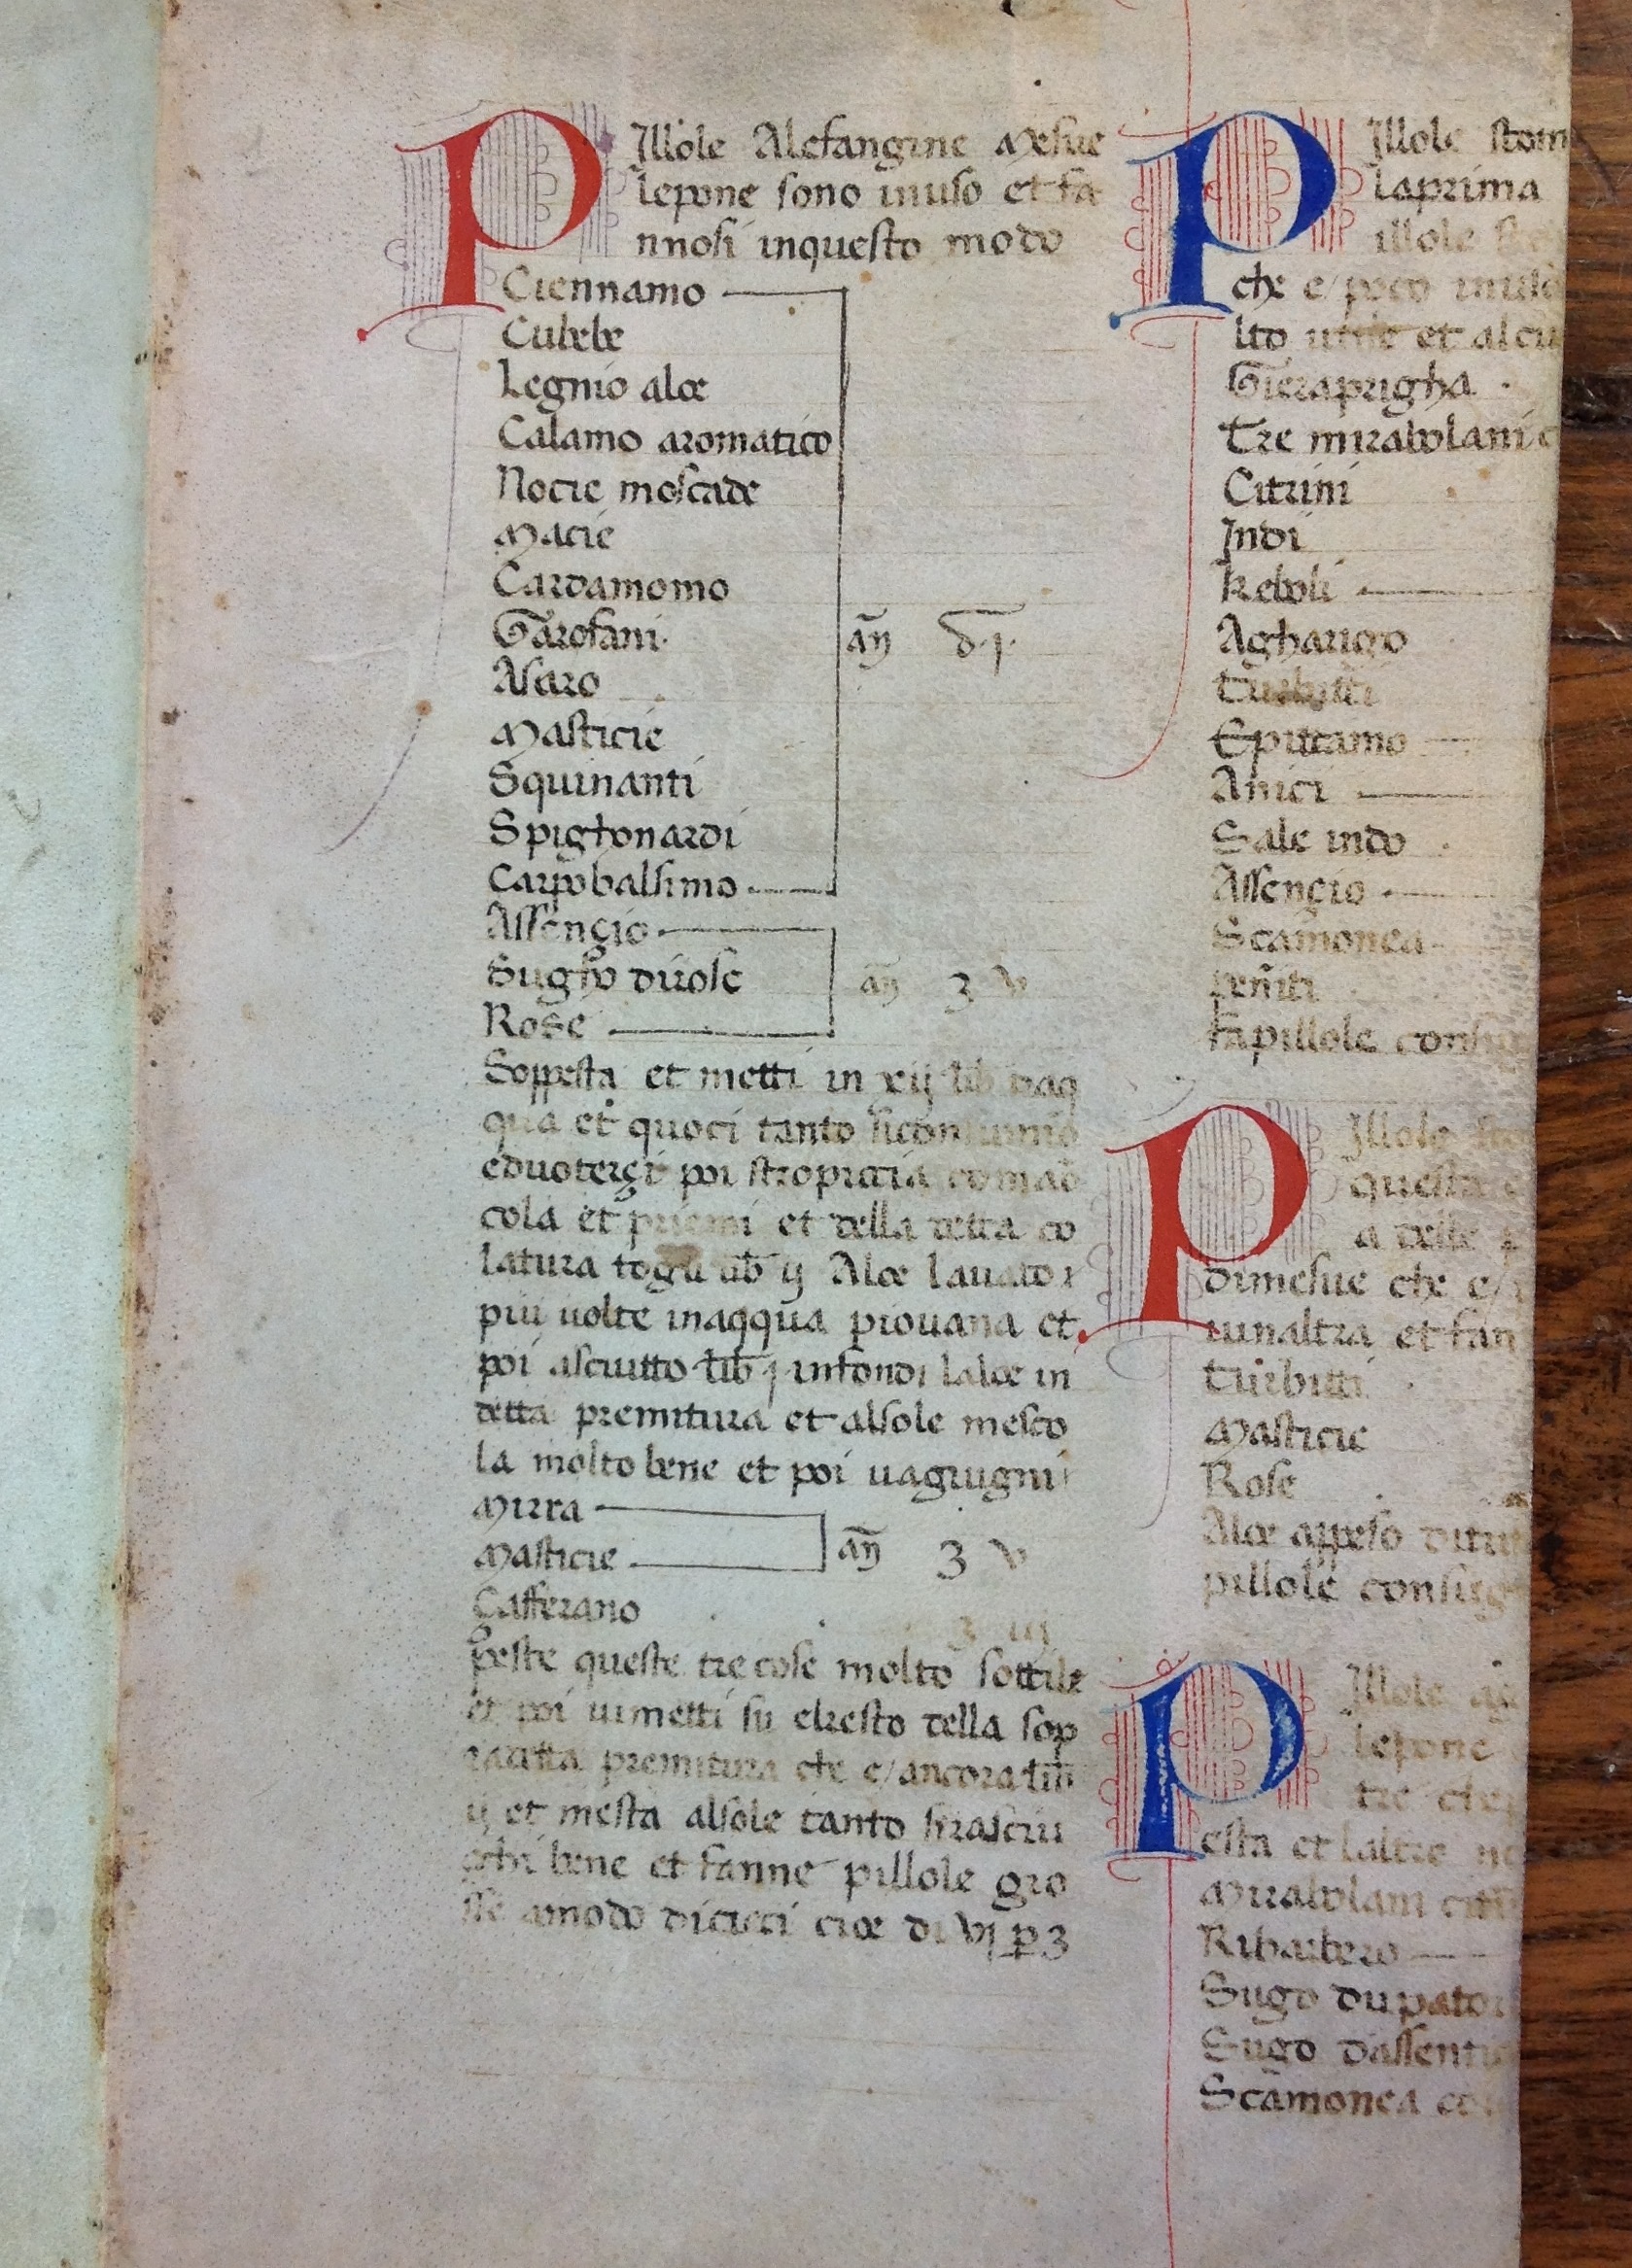 Pillole Alefangine Mesue
lepone sono inuso et fa
nnosi inquesto modo
Ciennamo
Cubebe
Legnio aloe
Calamo aromatico
Nocie moscade
Macie
Cardamomo
Garofani
añ d. j.
Asaro
Masticie
Squinanti
Spighonardi
Carpobalsimo
Assençio
Sugho dirose
añ ʒ v
Rose
Soppesta et metti in xij lib daq
qua et quoci tanto siconsumio
eduoterçi poi stropiccia
cola et priemi et della detta co
latura togli lib ij Aloe lauato
piu uolte inaqqua piouana et
poi asciutto lib j infondi laloe in
detta premitura et alsole mesco
la molto bene et poi uagiugni
Mirra
Masticie
añ ʒ v
Çafferano ʒ iij
peste queste tre cose molto sottile
et poi uimetti su elresto della sop
radetta premitura che e/ancora
ij et mesta alsole tanto sirasciu
ghi bene et fanne pillole gro
sse amodo dicieci cioe di vj p ʒ
Pillole stom
laprima
illole
che e/poco
lto utile et alcu
Gieraprigha
Tre mirabolani
Citrini
Indi
Keboli
Agharigo
Turbitti
Epitamo
Anici
Sale indo
Assençio
Scamonea
Fapillole consug
Pillole
questa
a delle
dimesue che e/
iunaltra et fan
Turbitti
Masticie
Rose
Aloe appeso ditut
pillole consug
Pillole
lepone
tre che
esta et laltre
Mirabolani citri
Ribarbero
Sugo dupator
Sugo dassent
Scamonea